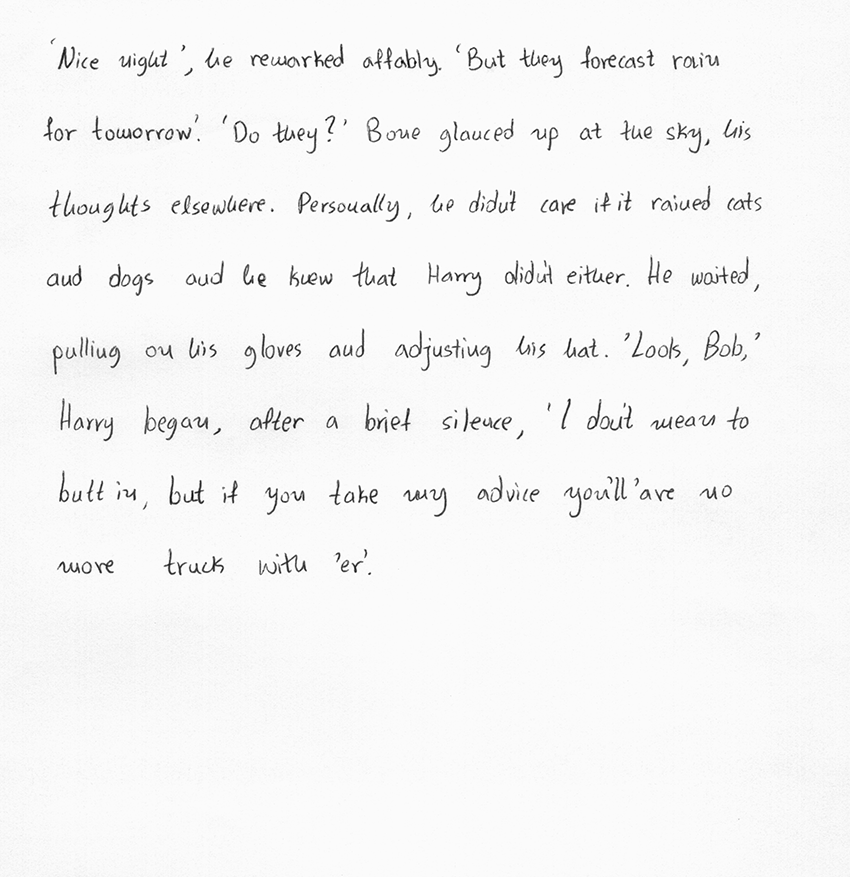 'Nice night', he remarked affably. 'But they forecast rain
for tomorrow'. 'Do they?' Bone glanced up at the sky, his
thoughts elsewhere. Personally, he didn't care if it rained cats
and dogs and he knew that Harry didn't either. He waited,
pulling on his gloves and adjusting his hat. 'Look, Bob,'
Harry began, after a brief silence, 'I don't mean to
butt in, but if you take my advice you'll 'ave no
more truck with 'er'.